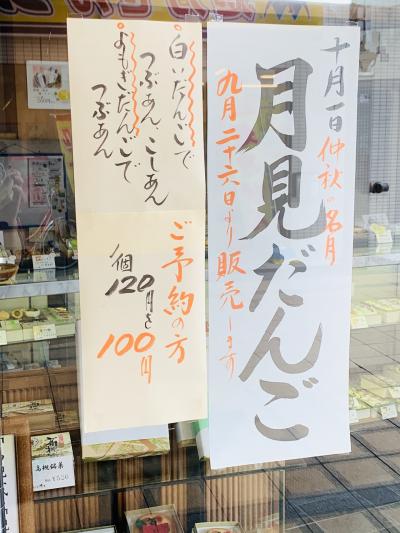 十月一日仲秋の名月
月見だんご
九月二十六日より販売します
白いだんごで
つぶあん、こしあん
よもぎだんごで
つぶあん
ご予約の方
1個120円を
100円
高槻銘菓